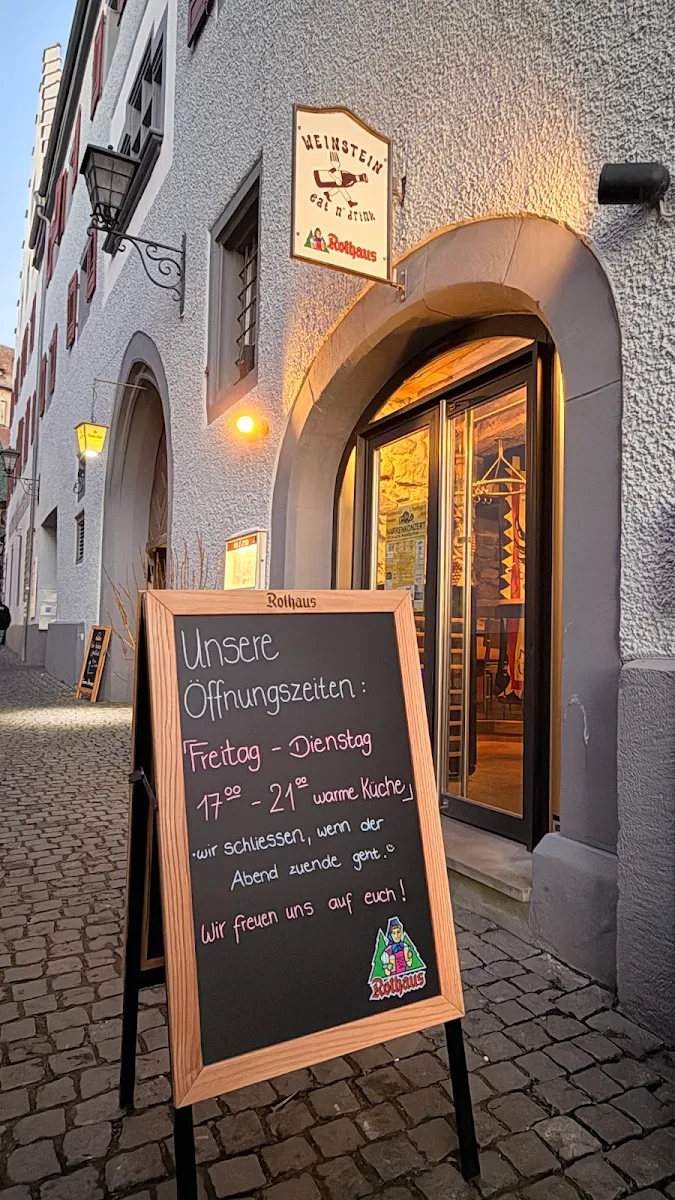 WEINSTEIN
eat n' drink
Rothaus
NARRENKONZERT
Rothaus
Unsere
Öffnungszeiten:
Freitag - Dienstag
17⁰⁰ - 21⁰⁰ warme Küche
· wir schliessen, wenn der
Abend zuende geht.
Wir freuen uns auf euch!
Rothaus